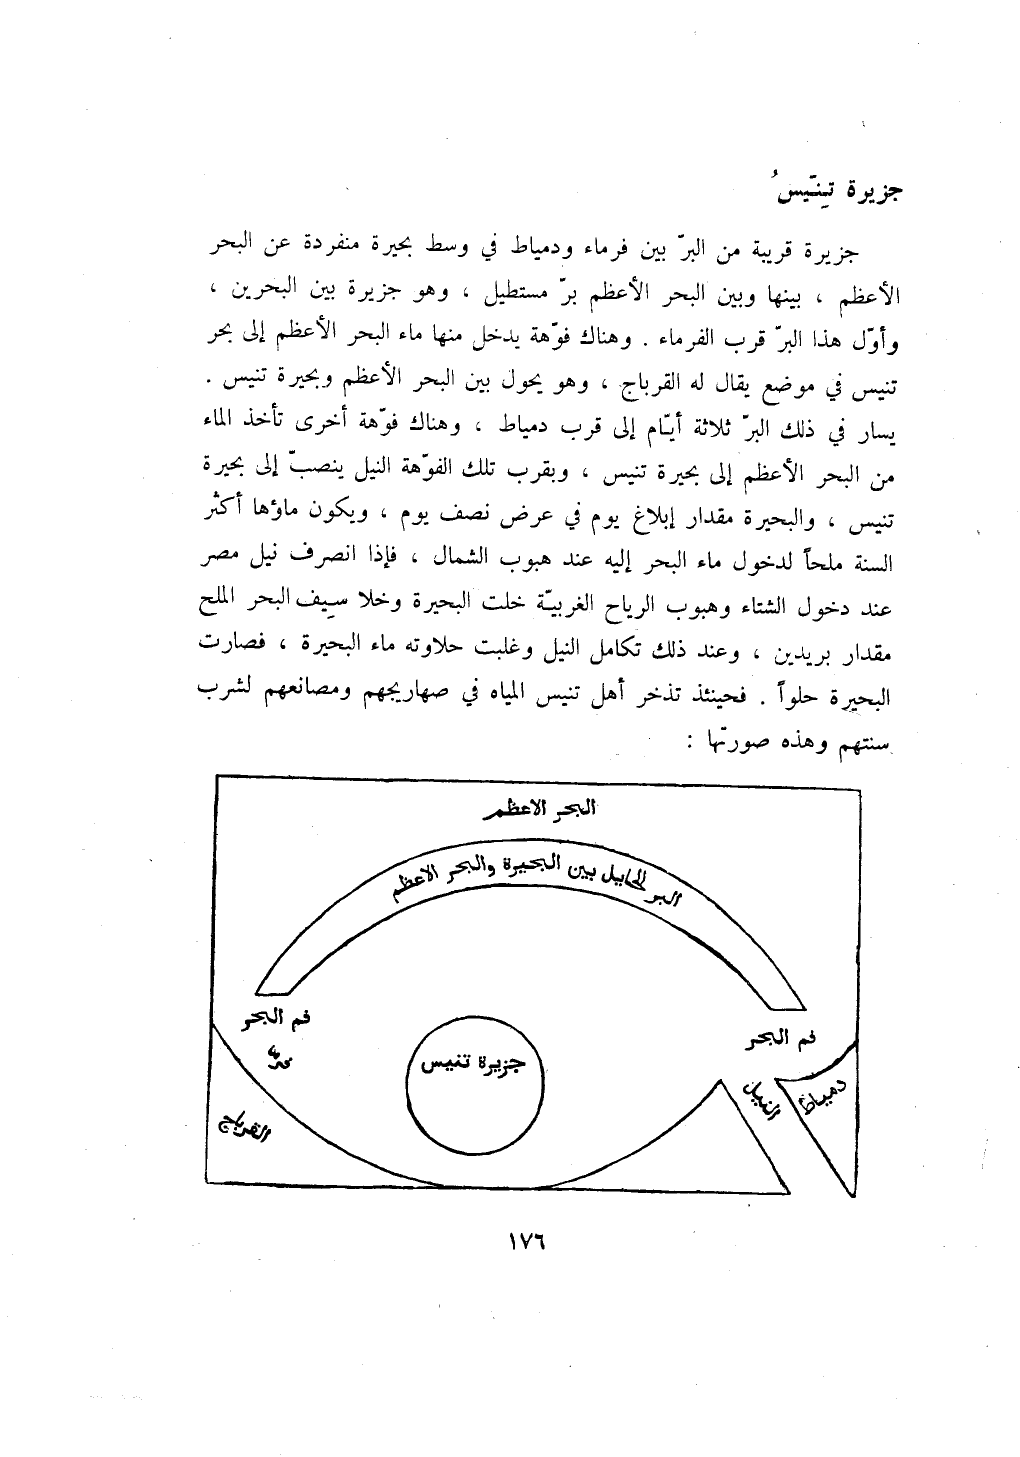 جزيرة تِنّيسُ
جزيرة قريبة من البرّ بين فرماء ودمياط في وسط بحيرة منفردة عن البحر
الأعظم ، بينها وبين البحر الأعظم برّ مستطيل ، وهو جزيرة بين البحرين ،
وأوّل هذا البرّ قرب الفرماء . وهناك فوّهة يدخل منها ماء البحر الأعظم إلى بحر
تنيس في موضع يقال له القرباج ، وهو يحول بين البحر الأعظم وبحيرة تنيس .
يسار في ذلك البرّ ثلاثة أيّام إلى قرب دمياط ، وهناك فوّهة أخرى تأخذ الماء
من البحر الأعظم إلى بحيرة تنيس ، وبقرب تلك الفوّهة النيل ينصبّ إلى بحيرة
تنيس ، والبحيرة مقدار إبلاغ يوم في عرض نصف يوم ، ويكون ماؤها أكثر
السنة ملحاً لدخول ماء البحر إليه عند هبوب الشمال ، فإذا انصرف نيل مصر
عند دخول الشتاء وهبوب الرياح الغربيّة خلت البحيرة وخلا سِيف البحر الملح
مقدار بريدين ، وعند ذلك تكامل النيل وغلبت حلاوته ماء البحيرة ، فصارت
البحيرة حلواً . فحينئذ تذخر أهل تنيس المياه في صهاريجهم ومصانعهم لشرب
سنتهم وهذه صورتها :
البحر الاعظم
البر الحايل بين البحيرة والبحر الاعظم
فم البحر
فم البحر
جزيرة تنيس
دمياط
النيل
القرباج
١٧٦